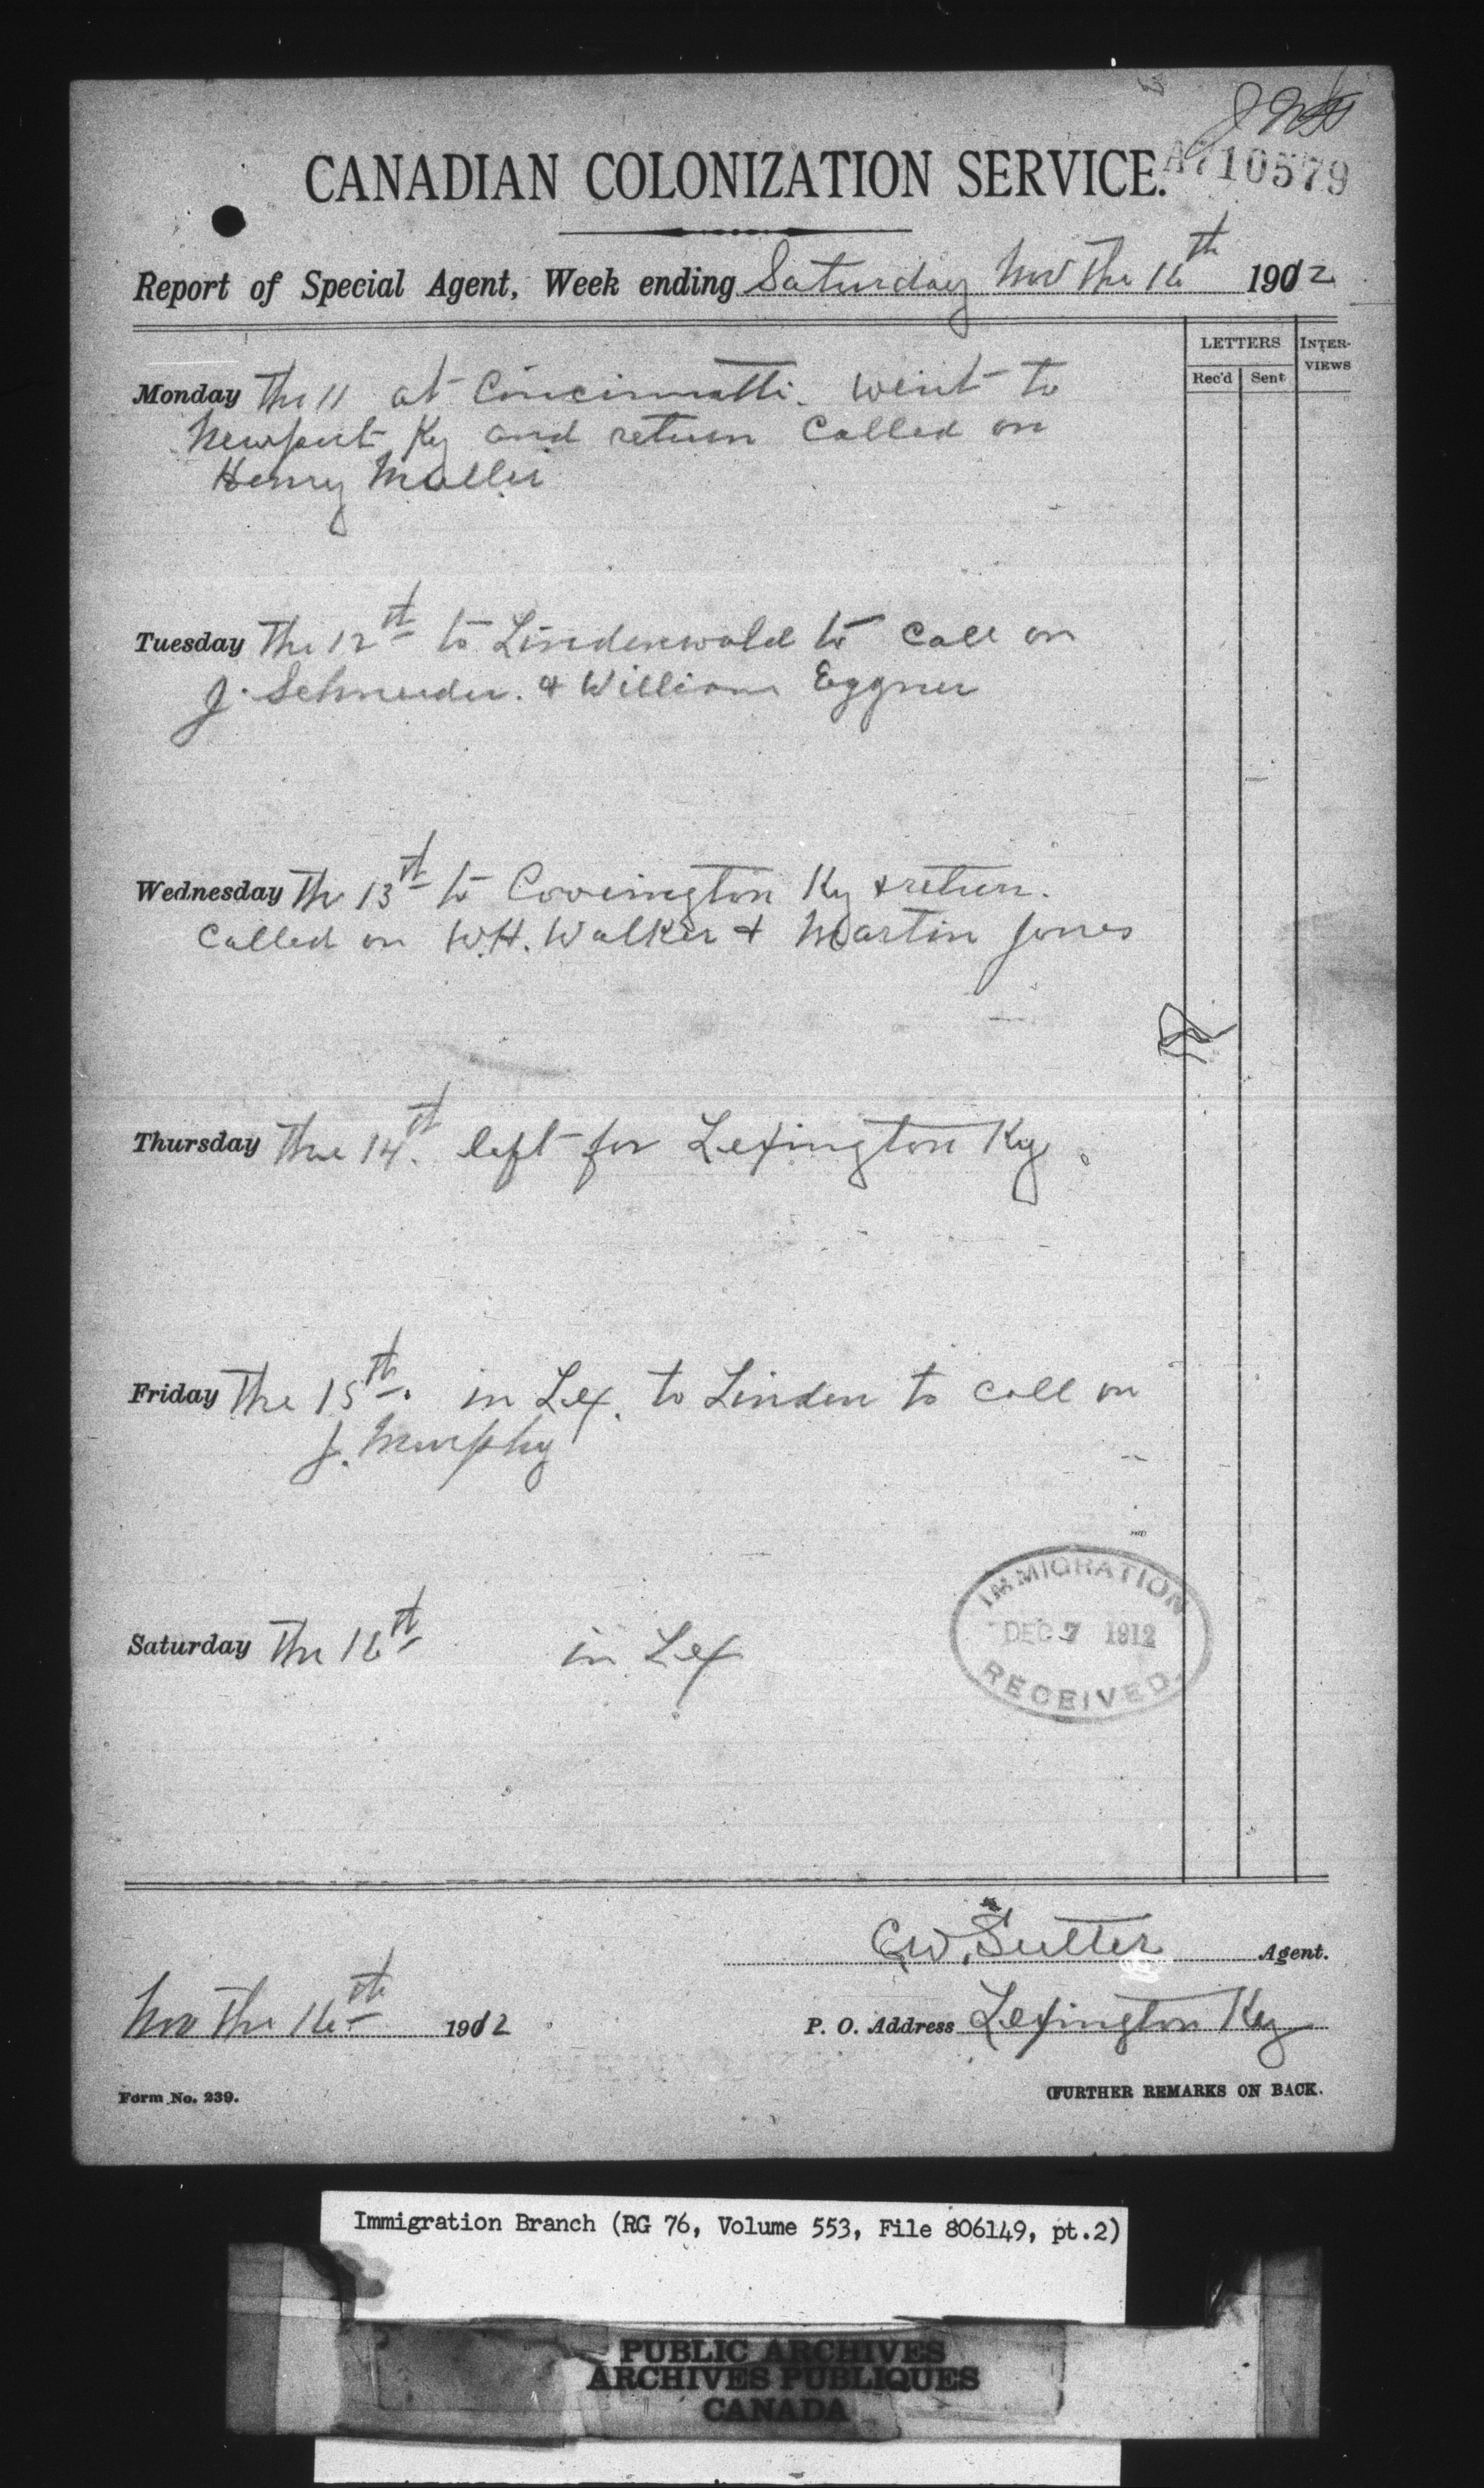 A710579
CANADIAN COLONIZATION SERVICE.
Report of Special Agent, Week ending Saturday Nov the 16th 1912
LETTERS INTER-VIEWS
Rec'd Sent
Monday the 11 at Cincinnatti. went to
Newport Ky and return Called on
Henry Muller
Tuesday the 12st to Lindenwald to call on
J. Schneider. & William Eggner
Wednesday the 13st to Covington Ky & return.
Called on W.H. Walker & Martin Jones
Thursday the 14th. left for Lexington Ky.
Friday the 15th. in Lex. to Linden to call on
J. Murphy
Saturday the 16th in Lex
IMMIGRATION
DEC 7 1912
RECEIVED
C.W. Sutter Agent.
Nov the 16th 1912
P. O. Address Lexington Ky
Form No. 239.
(FURTHER REMARKS ON BACK.
Immigration Branch (RG 76, Volume 553, File 806149, pt.2)
PUBLIC ARCHIVES
ARCHIVES PUBLIQUES
CANADA